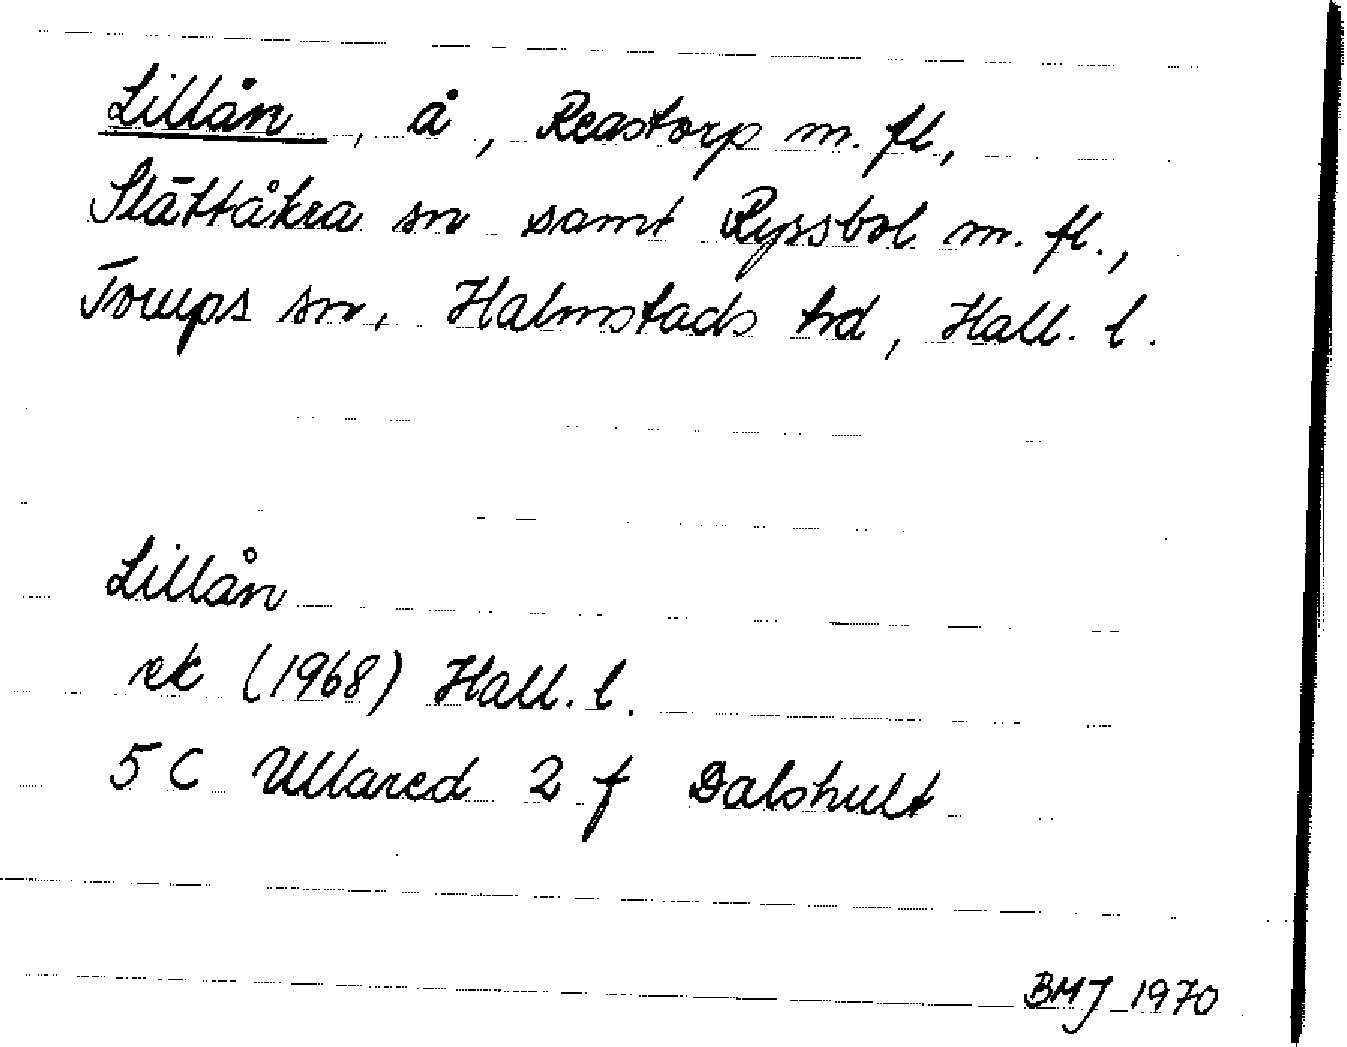 Lillån, å, Reastorp m. fl.,
Slättåkra sn samt Ryssbol m. fl.,
Torups sn, Halmstads hd, Hall. l.
Lillån
ek (1968) Hall. l.
5 C Ullared 2 f Dalshult
BMJ 1970